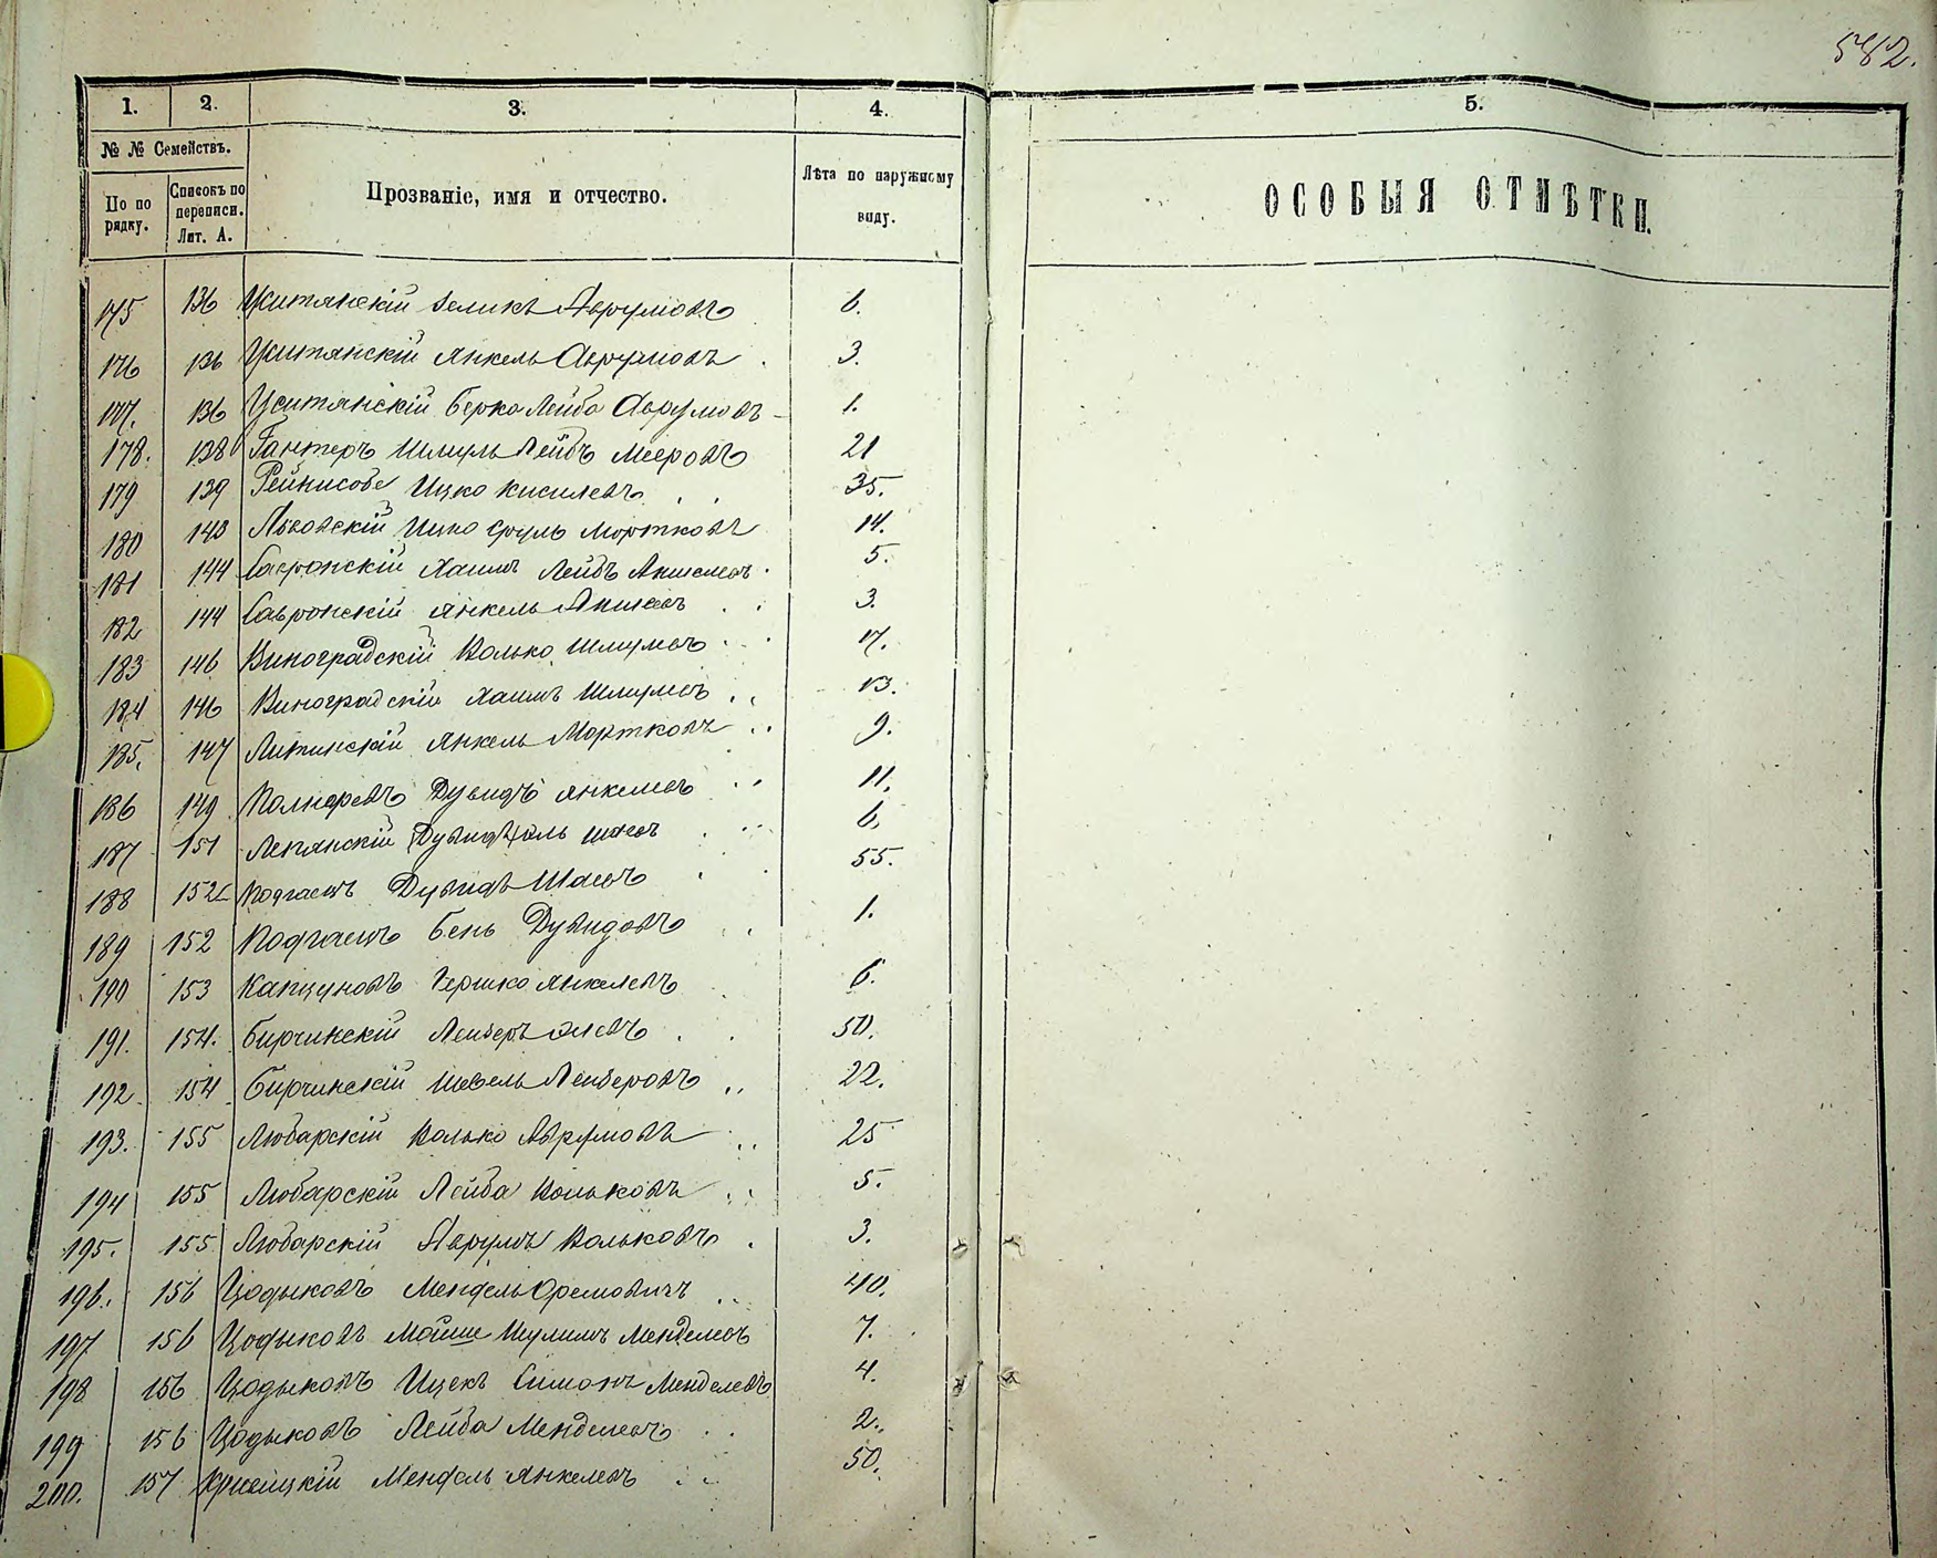 582.
1. 2. 3. 4. 5.
№ № Семействъ.
По по рядку. Списокъ по переписи. Лит. А. Прозваніе, имя и отчество. Лѣта по наружному виду. ОСОБЫЯ ОТМѢТКИ.
175 136 Уситянскій Зеликъ Аврумовъ 6.
176 136 Уситянскій Янкель Аврумовъ 3.
177. 136 Уситянскій Берко Лейба Аврумовъ 1.
178. 138 Гантеръ Шмуль Лейбъ Мееровъ 21
179 139 Ицко Кисилевъ 35.
180 143 Львовскій Ицко Сруль Мортковъ 14.
181 144 Савронскій Хаимъ Лейбъ Аншелевъ 5.
182 144 Савронскій Янкель 3.
183 146 Виноградскій Волько Шмулевъ 17.
184 146 Виноградскій Хаимъ Шмулевъ 13.
185. 147 Литинскій Янкель Мортковъ 9.
186 149 Дувидъ Янкелевъ 11.
187 151 6.
188 152 Подгаецъ Дувидъ 55.
189 152 Подгаецъ Бень Дувидовъ 1.
190 153 Капцуновъ Гершко Янкелевъ 6.
191. 154. Бирчинскій Лейзеръ 50.
192. 154 Бирчинскій Шевель Лейзеровъ 22.
193. 155 Любарскій Волько Аврумовъ 25
194 155 Любарскій Лейба Вольковъ 5.
195. 155 Любарскій Аврумъ Вольковъ 3.
196. 156 Цодыковъ Мендель Фремовичъ 40.
197 156 Цодыковъ Мойше Шулимъ Менделевъ 7.
198 156 Цодыковъ Ицекъ Симонъ Менделевъ 4.
199 156 Цодыковъ Лейба Менделевъ 2.
200. 157 Мендель Янкелевъ 50.